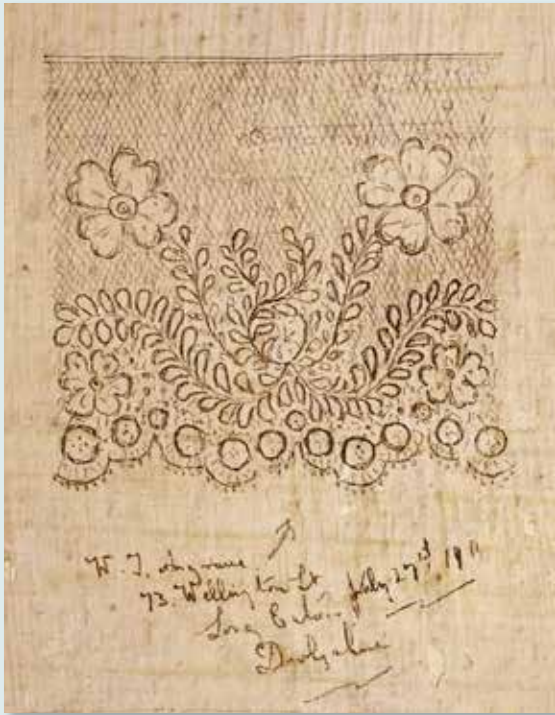 W. T.
73. Wellington St July 27th 1911
Long Eaton
Derbyshire